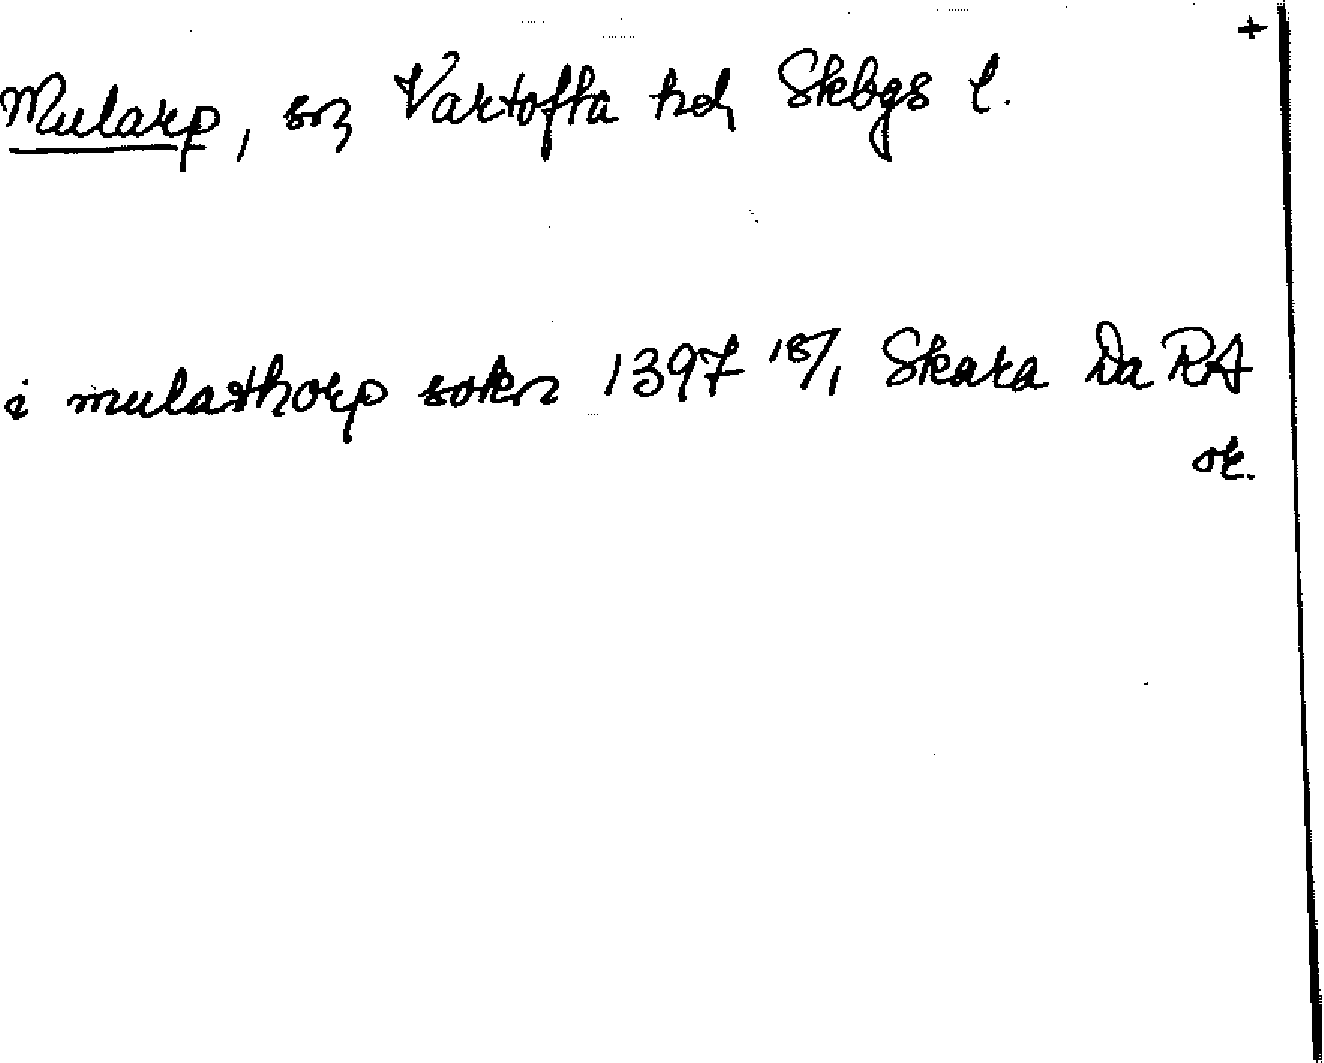 +
Mularp, sn, Vartofta hd, Skbgs l.
i mulasthorp sokn 1397 18/1 Skara Da RA
or.